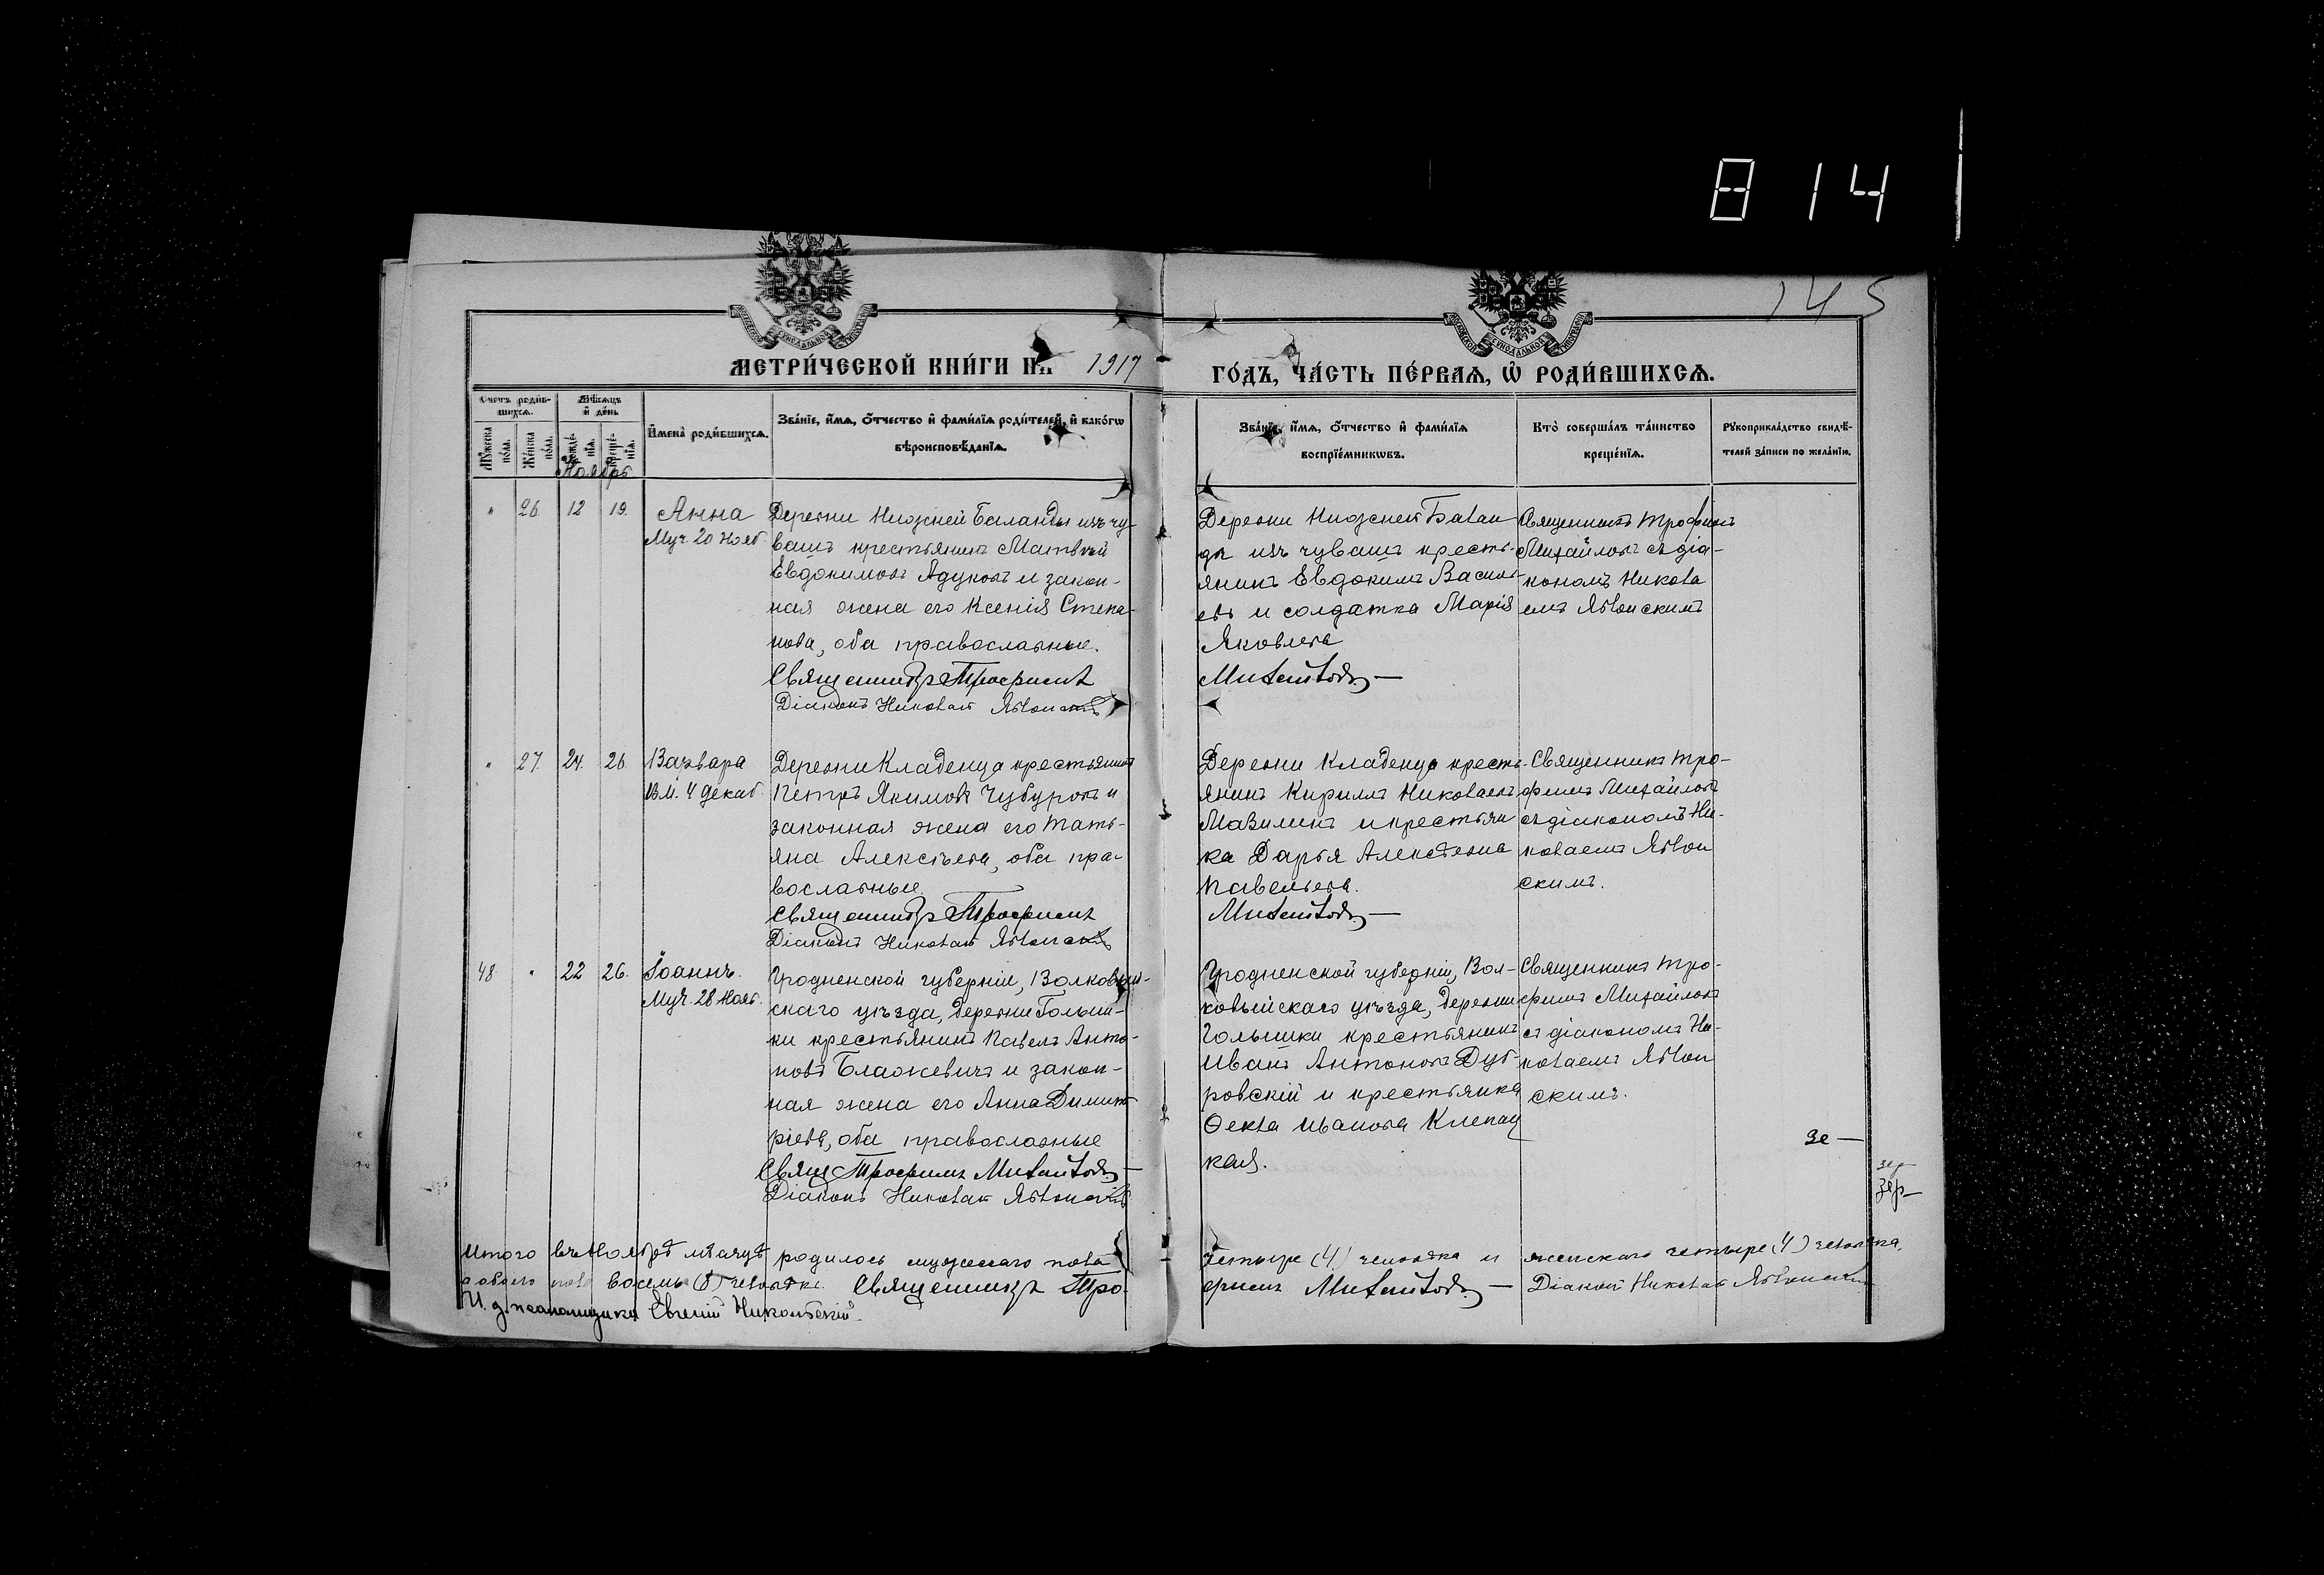 8 14
145
МЕТРИ́ЧЕСКОЙ КНИ́ГИ НА 1917 ГО́ДЪ, ЧА́СТЬ ПЕ́РВАѦ, Ѽ РОДИ́ВШИХСѦ.
Счетъ роди́вшихсѧ.
Мѣ́сяцъ и҆ де́нь
Мꙋ́жеска по́ла.
Же́нска по́ла.
Рожде́нїѧ.
Креще́нїѧ.
Ноябрь
И҆мена̀ роди́вшихсѧ.
Зва́нїе, и҆́мѧ, ѻ҆́тчество и҆ фами́лїѧ роди́телей, и҆ како́гѡ
вѣроисповѣ́данїѧ.
Зва́нїе, и҆́мѧ, ѻ҆́тчество и҆ фами́лїѧ
воспрїе́мникѡвъ.
Кто̀ соверша́лъ та́инство
креще́нїѧ.
Рꙋкоприкла́дство свидѣ́телей за́писи по жела́нїю.
" 26. 12 19.
Анна
Муч. 20 Нояб.
Деревни Нижней Баланды изъ чу-
вашъ крестьянинъ Матвѣй
Евдокимовъ Ядуковъ и закон-
ная жена его Ксенія Степа-
нова, оба православные.
Священникъ Трофимъ
Діаконъ Николай Яблонскій
Деревни Нижней Балан
ды изъ чувашъ кресть-
янинъ Евдокимъ Василь-
евъ и солдатка Марія
Яковлева
Михайловъ —
Священникъ Трофимъ
Михайловъ съ діа-
кономъ Никола
емъ Яблонскимъ
" 27. 24. 26.
Варвара
В.М. 4 декаб.
Деревни Кладенца крестьянинъ
Петръ Якимовъ Чубуровъ и
законная жена его Тать-
яна Алексѣева, оба пра-
вославные.
Священникъ Трофимъ
Діаконъ Николай Яблонскій
Деревни Кладенца кресть-
янинъ Кириллъ Николаевъ
Мазилинъ и крестьян
ка Дарья Алексѣевна
Павельева.
Михайловъ —
Священникъ Тро-
фимъ Михайловъ
съ діакономъ Ни-
колаемъ Яблон
скимъ.
48. " 22 26.
Іоаннъ.
Муч. 28 Нояб.
Гродненской губерніи, Волковый-
скаго уѣзда, деревни Голыш-
ки крестьянинъ Павелъ Анто-
новъ Блажевичъ и закон-
ная жена его Анна Димит
ріева, оба православные
Свящ Трофимъ Михайловъ —
Діаконъ Николай Яблонскій
Гродненской губерніи, Вол-
ковыйскаго уѣзда, деревни
Голышки крестьянинъ
Иванъ Антоновъ Дуб-
ровскій и крестьянка
Ѳекла Иванова Клепац
кая.
Священникъ Тро-
фимъ Михайловъ
съ діакономъ Ни-
колаемъ Яблон
скимъ.
Итого въ Ноябрѣ мѣсяцѣ родилось мужескаго пола четыре (4) человѣка и женскаго четыре (4) человѣка,
а обоего пола восемь (8) человѣкъ. Священникъ Трофимъ Михайловъ — Діаконъ Николай Яблонскій
И. д. псаломщика Евгеній Никольскій.